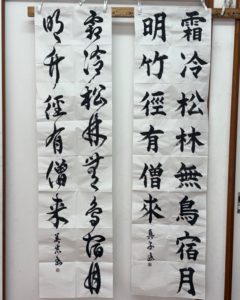 霜冷松林無鳥宿月
明竹徑有僧來
霜冷松林無鳥宿月
明竹徑有僧来